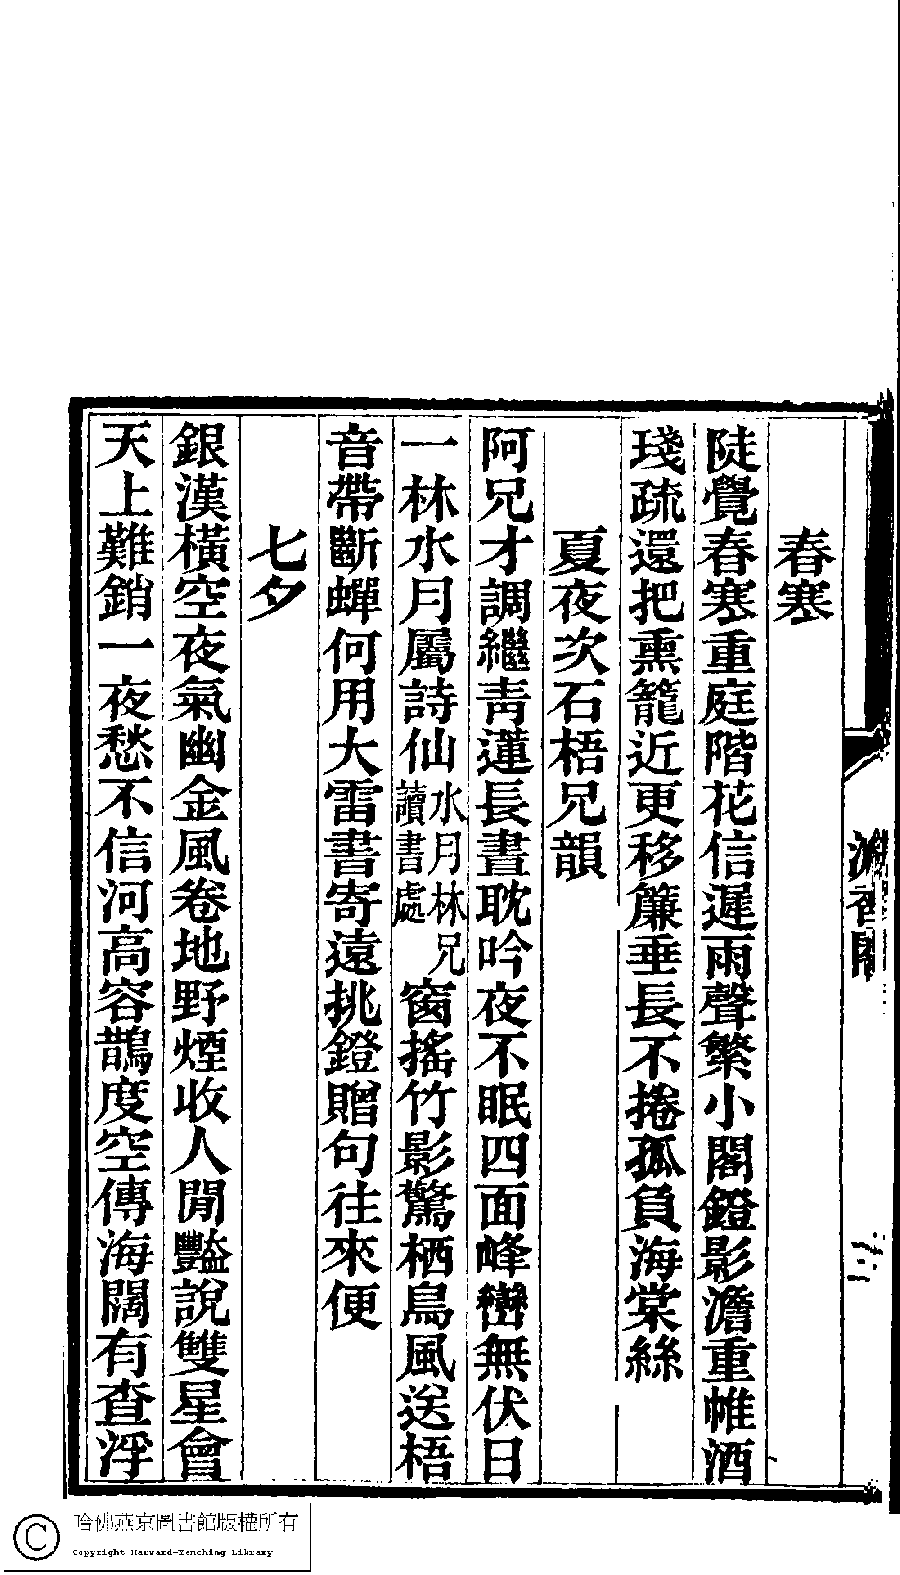 春寒
陡覺春寒重庭階花信遲雨聲繁小閣鐙影澹重帷酒
琖疏還把熏籠近更移簾垂長不捲孤負海棠絲
夏夜次石梧兄韻
阿兄才調繼靑蓮長晝耽吟夜不眠四面峰巒無伏日
一林水月屬詩仙水月林兄讀書處窗搖竹影驚栖鳥風送梧
音帶斷蟬何用大雷書寄遠挑鐙贈句往來便
七夕
銀漢橫空夜氣幽金風卷地野煙收人閒豔說雙星會
天上難銷一夜愁不信河高容鵲度空傳海闊有查浮
哈佛燕京圖書館版權所有
Copyright Harvard-Yenching Library